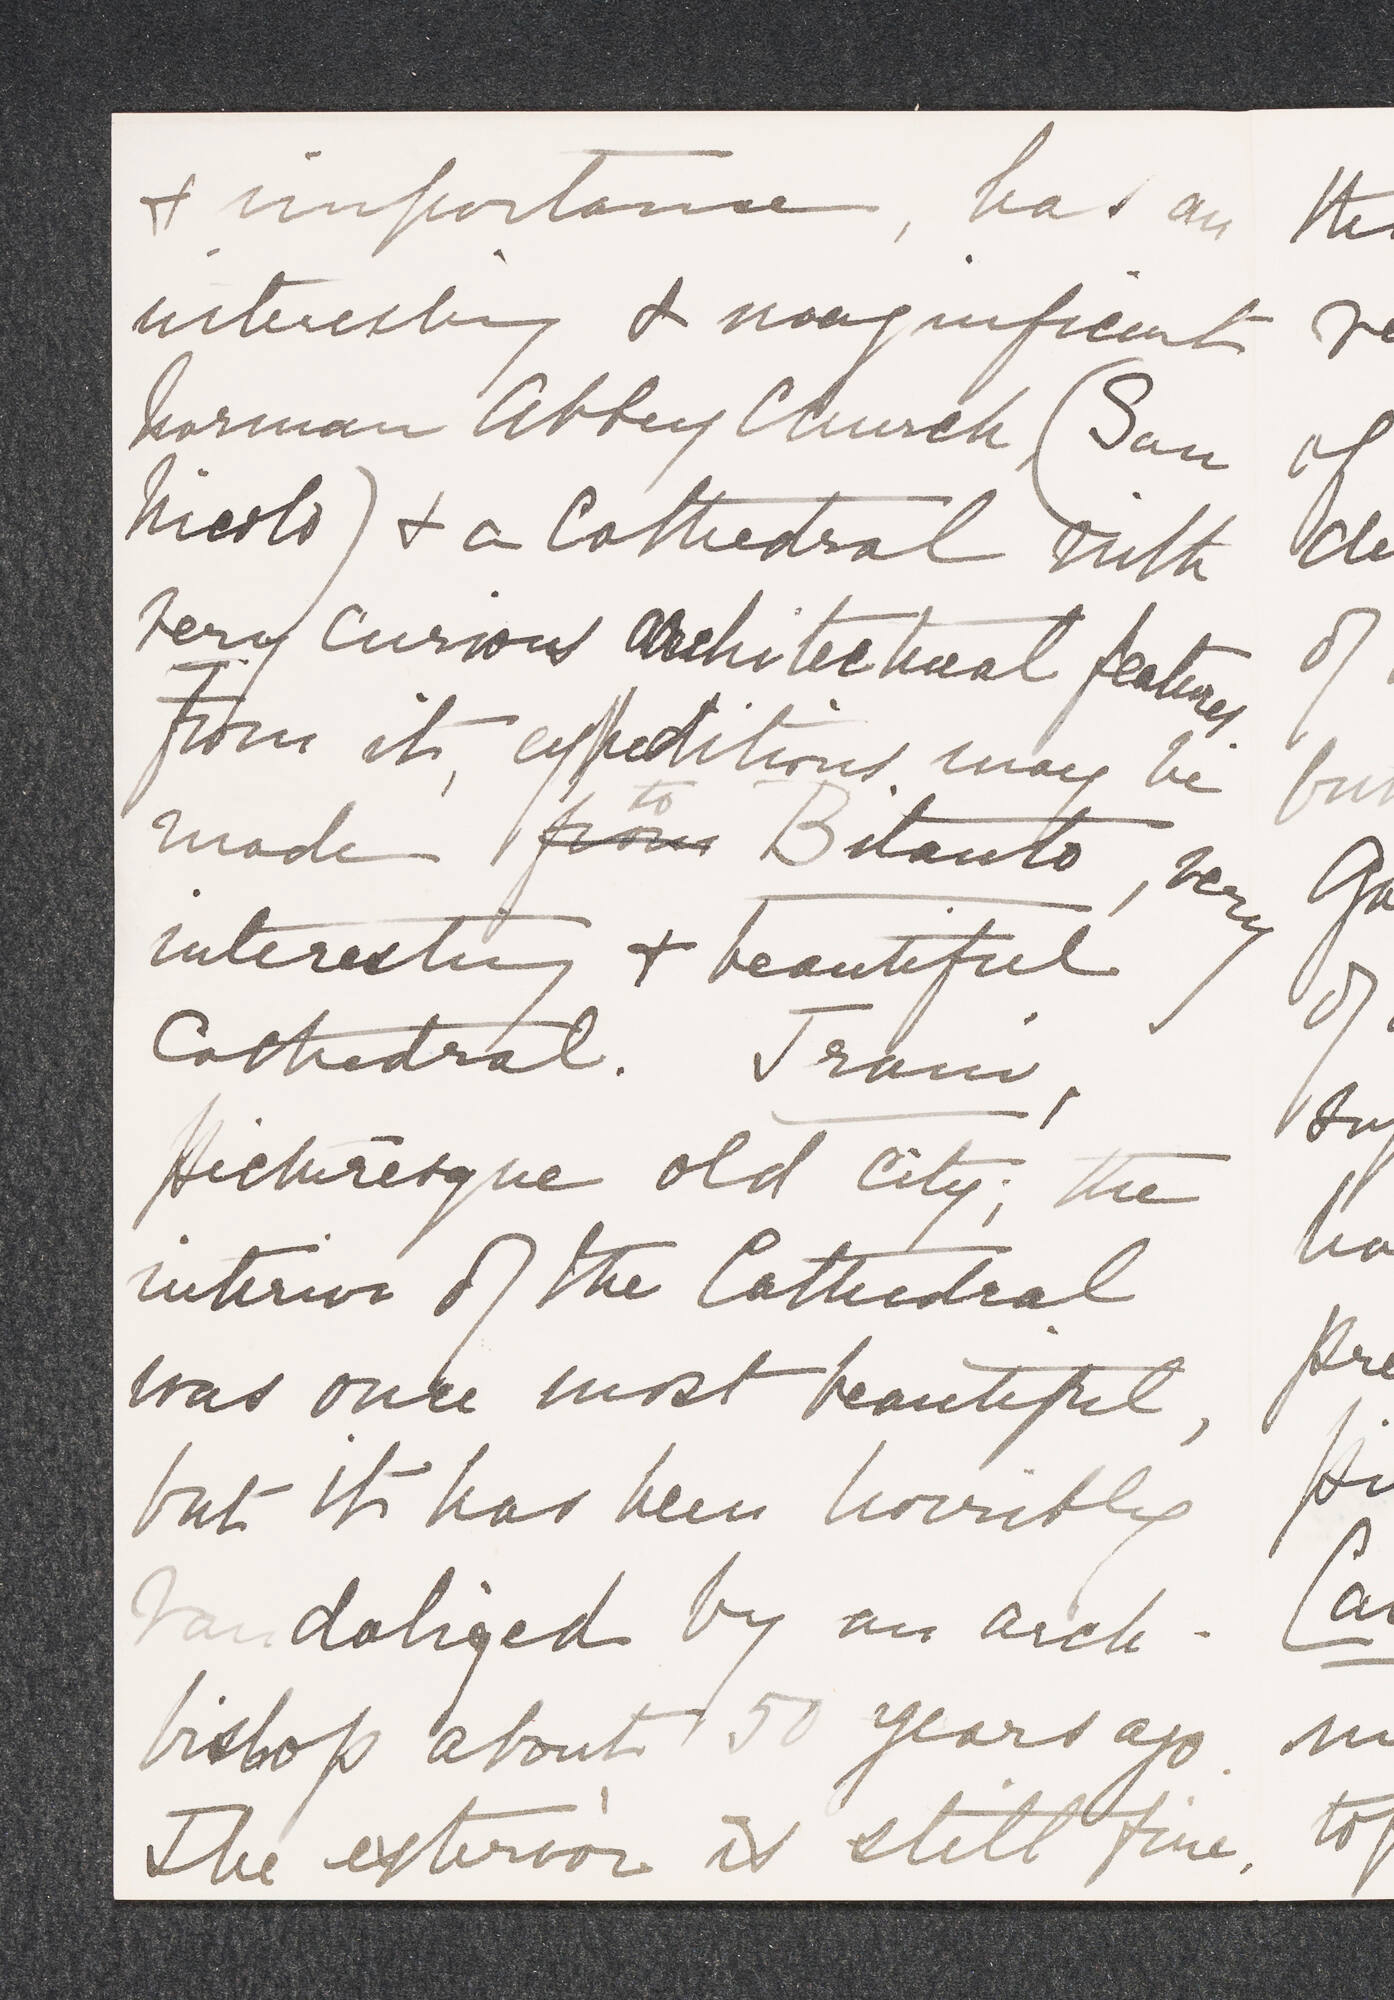 & importance, has an
interesting & magnificent
Norman Abbey Church, (San
Nicolo) & a Cathedral with
very curious architectural features
From it, expeditions may be
made from to Bitonto, very
interesting & beautiful
Cathedral. Trani,
picturesque old city; the
interior of the Cathedral
was once most beautiful,
but it has been horribly
vandalized by an arch-
bishop about 50 years ago.
The exterior is still fine,
of
of
of